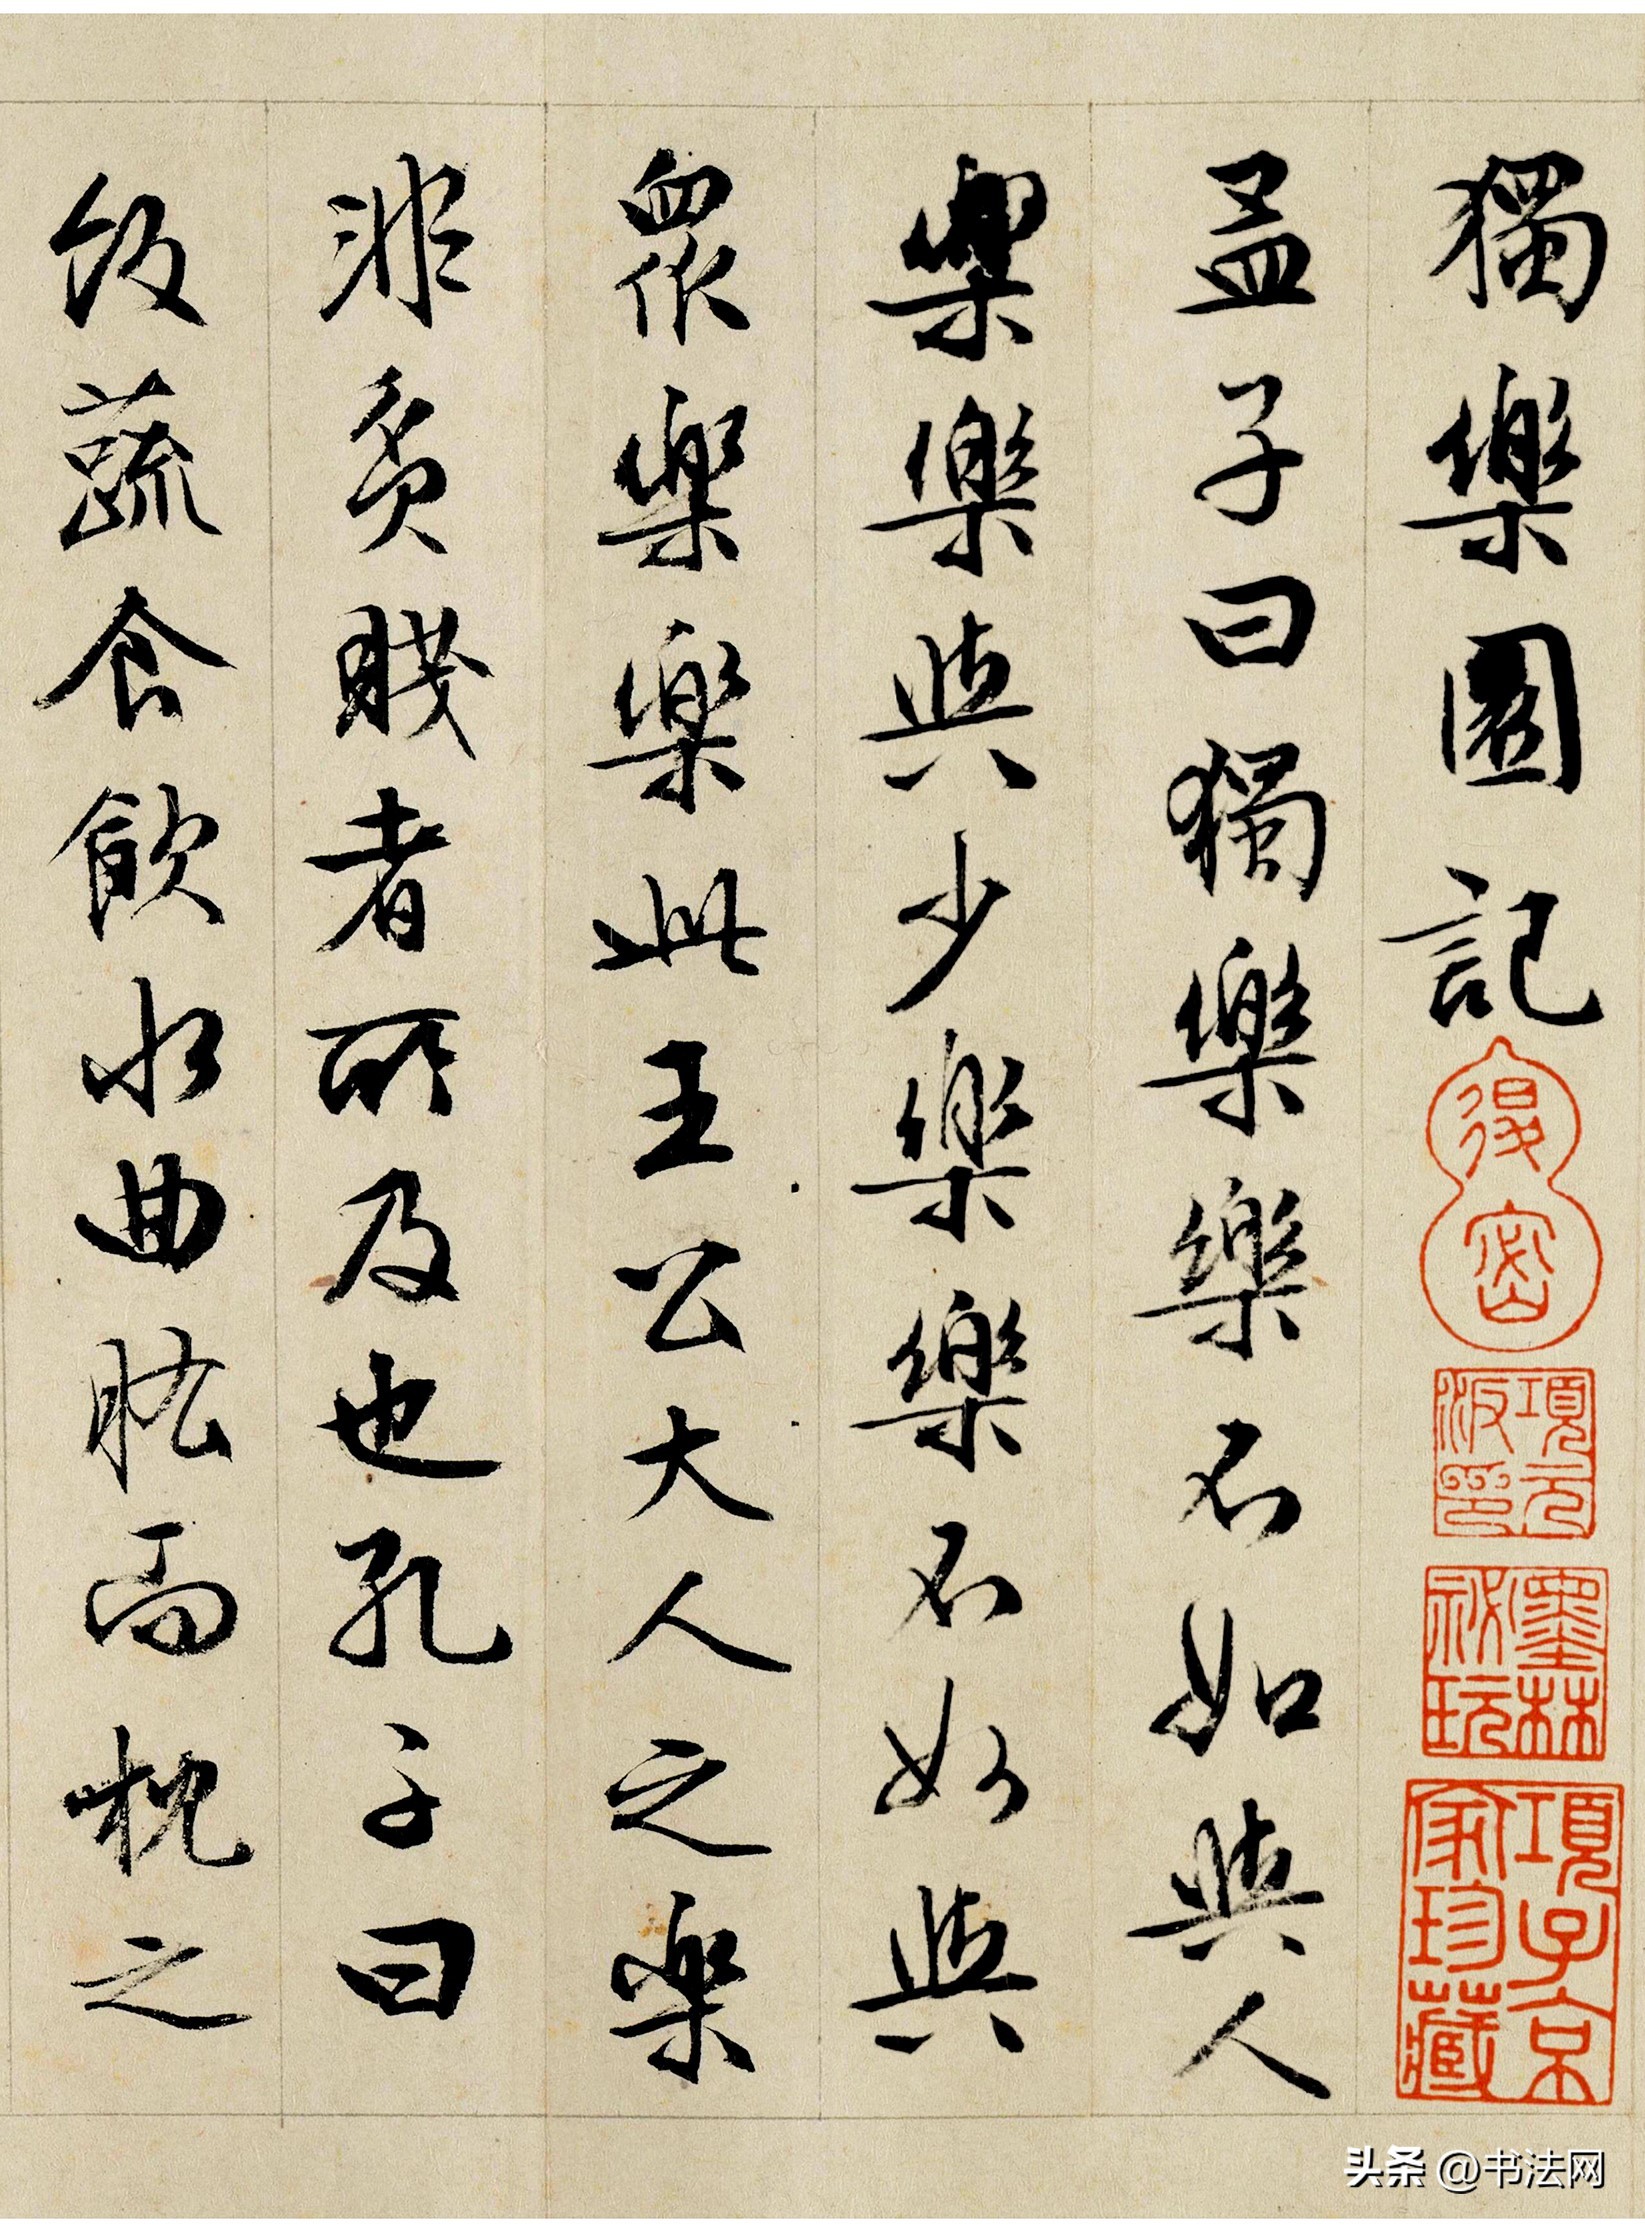 獨樂園記
孟子曰獨樂樂不如與人
樂樂與少樂樂不如與
眾樂樂此王公大人之樂
非貧賤者所及也孔子曰
飯蔬食飲水曲肱而枕之
得密
項元汴印
墨林祕玩
項子京家珍藏
头条 @书法网